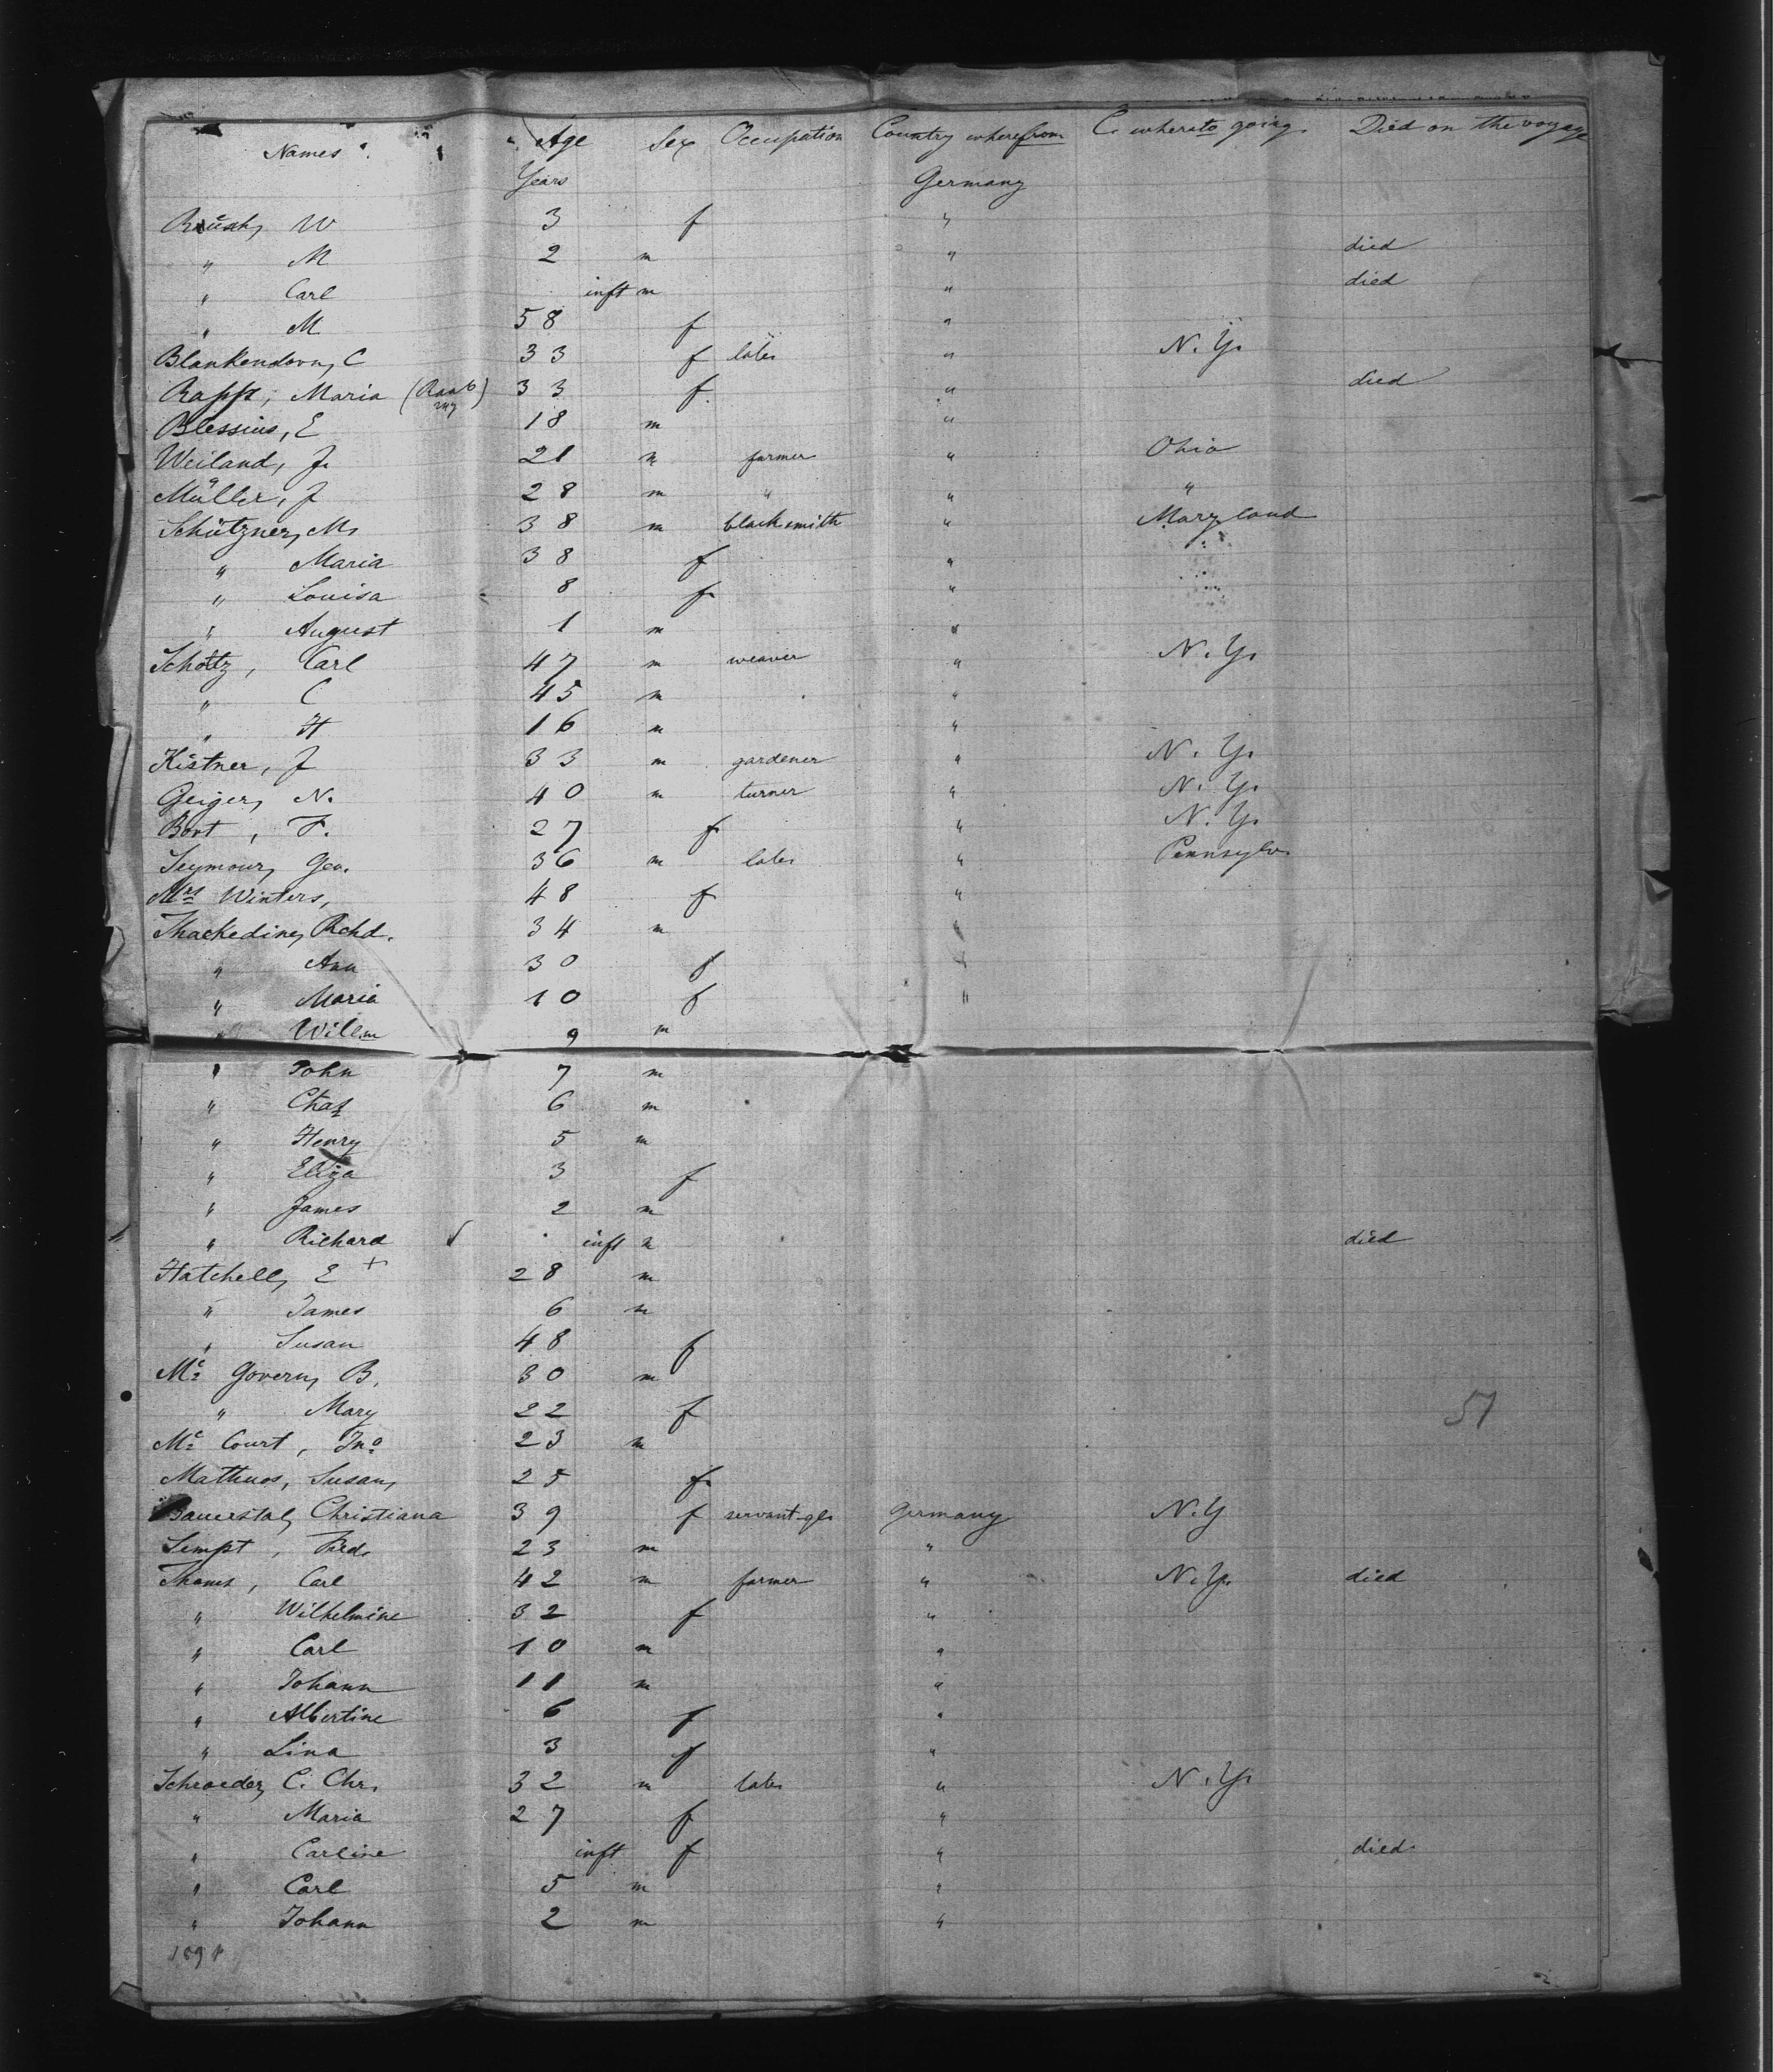 Names Age Sex Occupation Country wherefrom C. whereto going Died on the voyage
Years Germany
Rausch, W 3 f "
" M 2 m " died
" Carl inft m " died
" M 58 f "
Blankendorn, C 33 f labr " N. Y.
Rapp, Maria (Raab) 33 f " died
Blessius, E 18 m "
Weiland, J. 21 m farmer " Ohio
Müller, J 28 m " " "
Schützner, M. 38 m blacksmith " Maryland
" Maria 38 f "
" Louisa 8 f "
" August 1 m "
Schötz, Carl 47 m weaver " N. Y.
" C 45 m "
" H 16 m "
Kistner, J 33 m gardener " N. Y.
Geiger, N. 40 m turner " N. Y.
Bort, F. 27 f " N. Y.
Seymour, Geo. 36 m labr " Pennsylv.
Mrs Winters, 48 f "
Thackedine, Richd. 34 m "
" Ann 30 f "
" Maria 10 f "
" Willm 9 m
" John 7 m
" Chas 6 m
" Henry 5 m
" Eliza 3 f
" James 2 m
" Richard inft m died
Hatchell, E + 28 m
" James 6 m
" Susan 48 f
Mc Govern, B. 30 m
" Mary 22 f 51
Mc Court, Jno 23 m
Mathuos, Susan, 25 f
Bauerstal, Christiana 39 f servant-gl. Germany N.Y
Sempt, Fred. 23 m "
Thoms, Carl 42 m farmer " N.Y. died
" Wilhelmine 32 f "
" Carl 10 m "
" Johann 11 m "
" Albertine 6 f "
" Lina 3 f "
Schroeder, C. Chr. 32 m labr " N. Y.
" Maria 27 f "
" Carline inft f " died
" Carl 5 m "
" Johann 2 m "